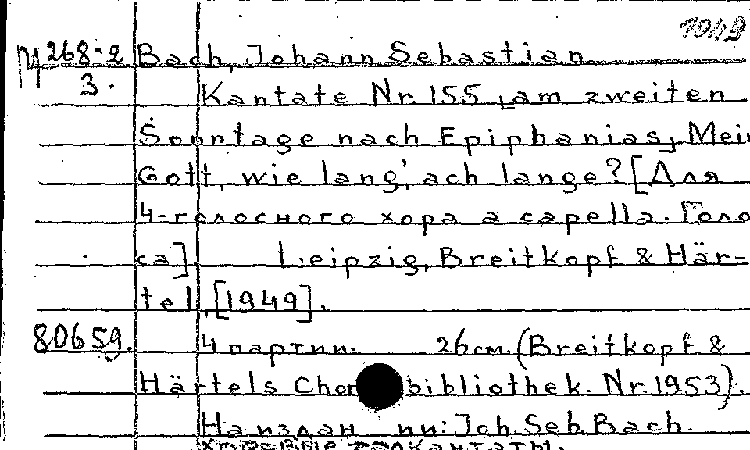 1042
М 268-2 Bach, Johann Sebastian
3. Kantate Nr. 155 „am zweiten
Sonntage nach Epiphanias, Mein
Gott, wie lang, ach lange? [Для
4-голосного хора a capella. Голо
са]. Leipzig, Breitkopf & Här-
tel, [1949].
80659. 4 партии. 26 см. (Breitkopf &
Härtels Chor bibliothek. Nr. 1953).
На изд. Joh. Seb. Bach.